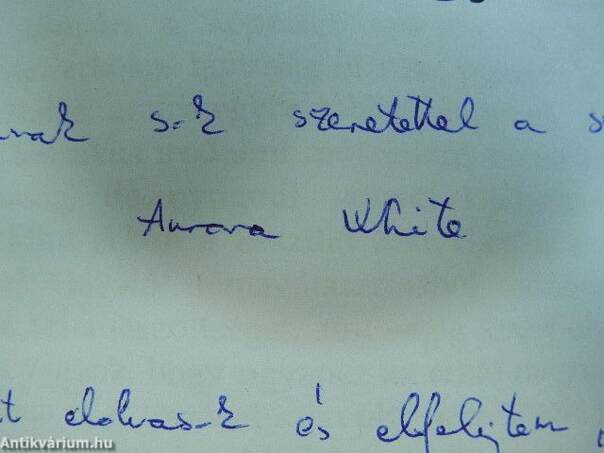 s-k szeretettel a s
Aurora White
t elolvas-k és elfelejtem,
Antikvárium.hu